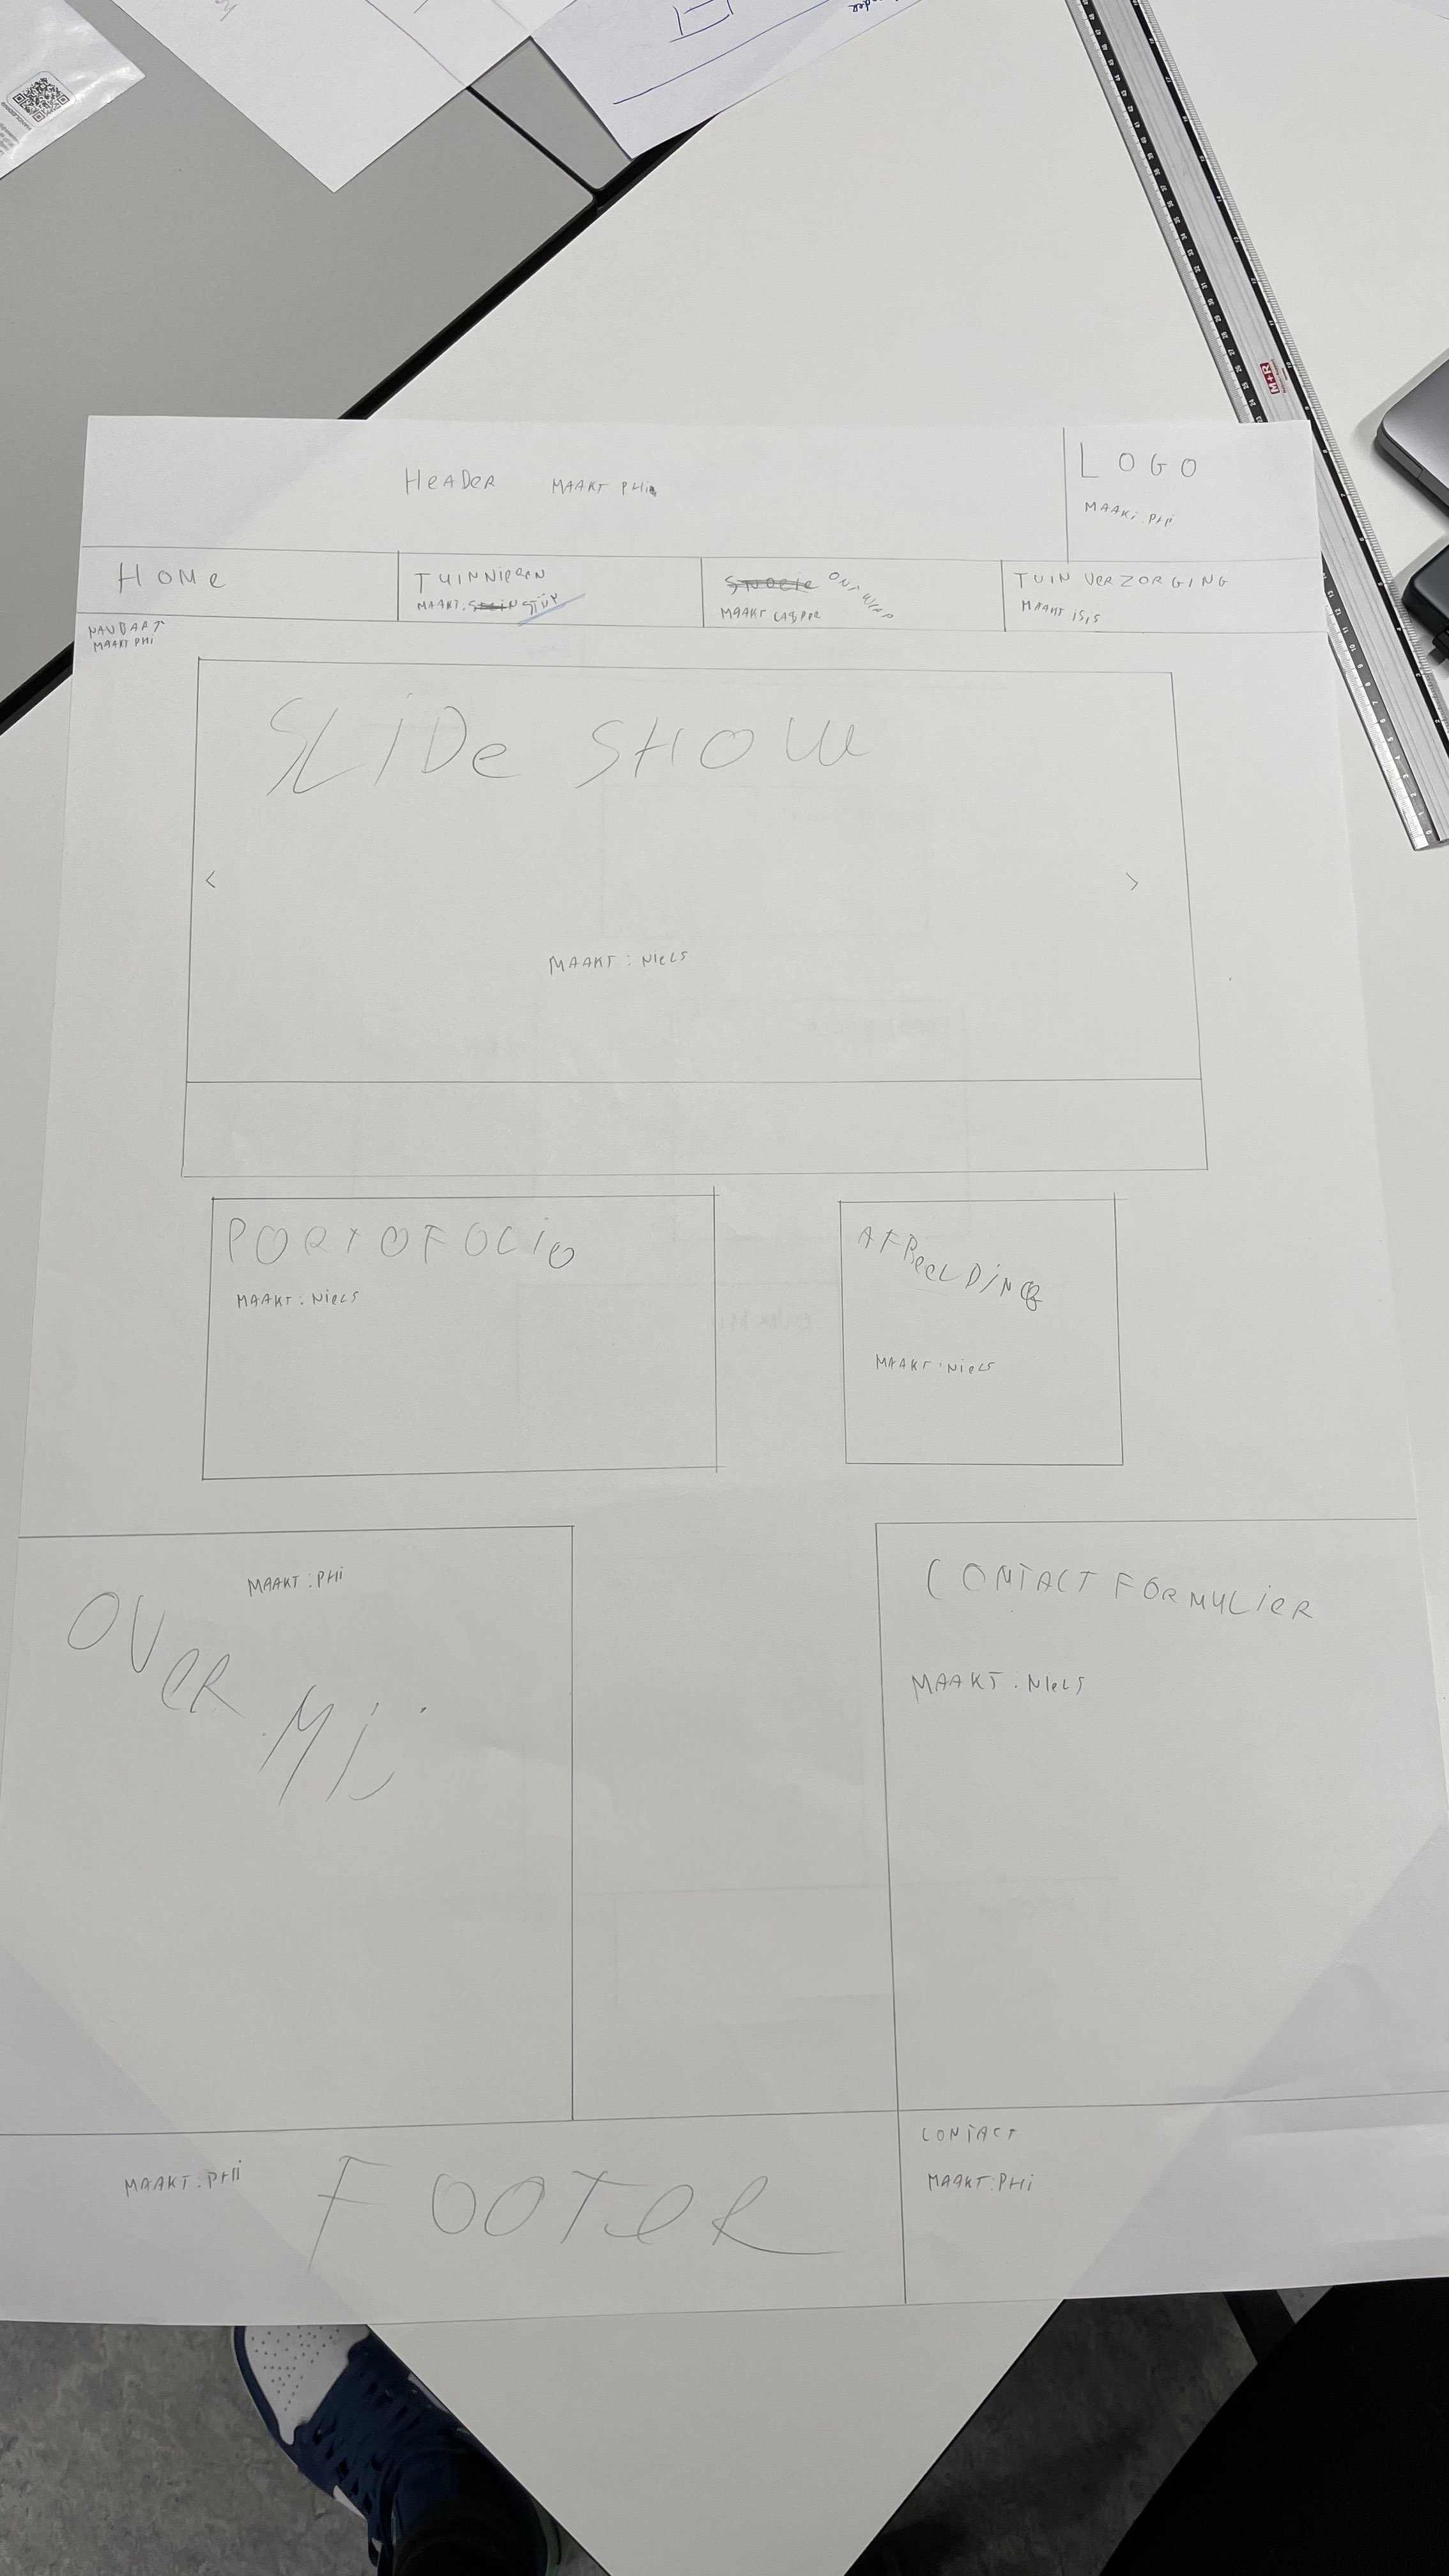 HEADER MAAKT PHI
LOGO
MAAKT: PHI
HOME
TUINNIEREN
MAAKT:
ONTWERP
MAAKT CASPER
TUIN VERZORGING
MAAKT ISIS
NAVBART
MAAKT PHI
SLIDE SHOW
< >
MAAKT: NIELS
PORTOFOLIO
MAAKT: NIELS
AFBEELDING
MAAKT: NIELS
MAAKT: PHI
OVER MIJ
CONTACT FORMULIER
MAAKT: NIELS
MAAKT: PHI
FOOTER
CONTACT
MAAKT: PHI